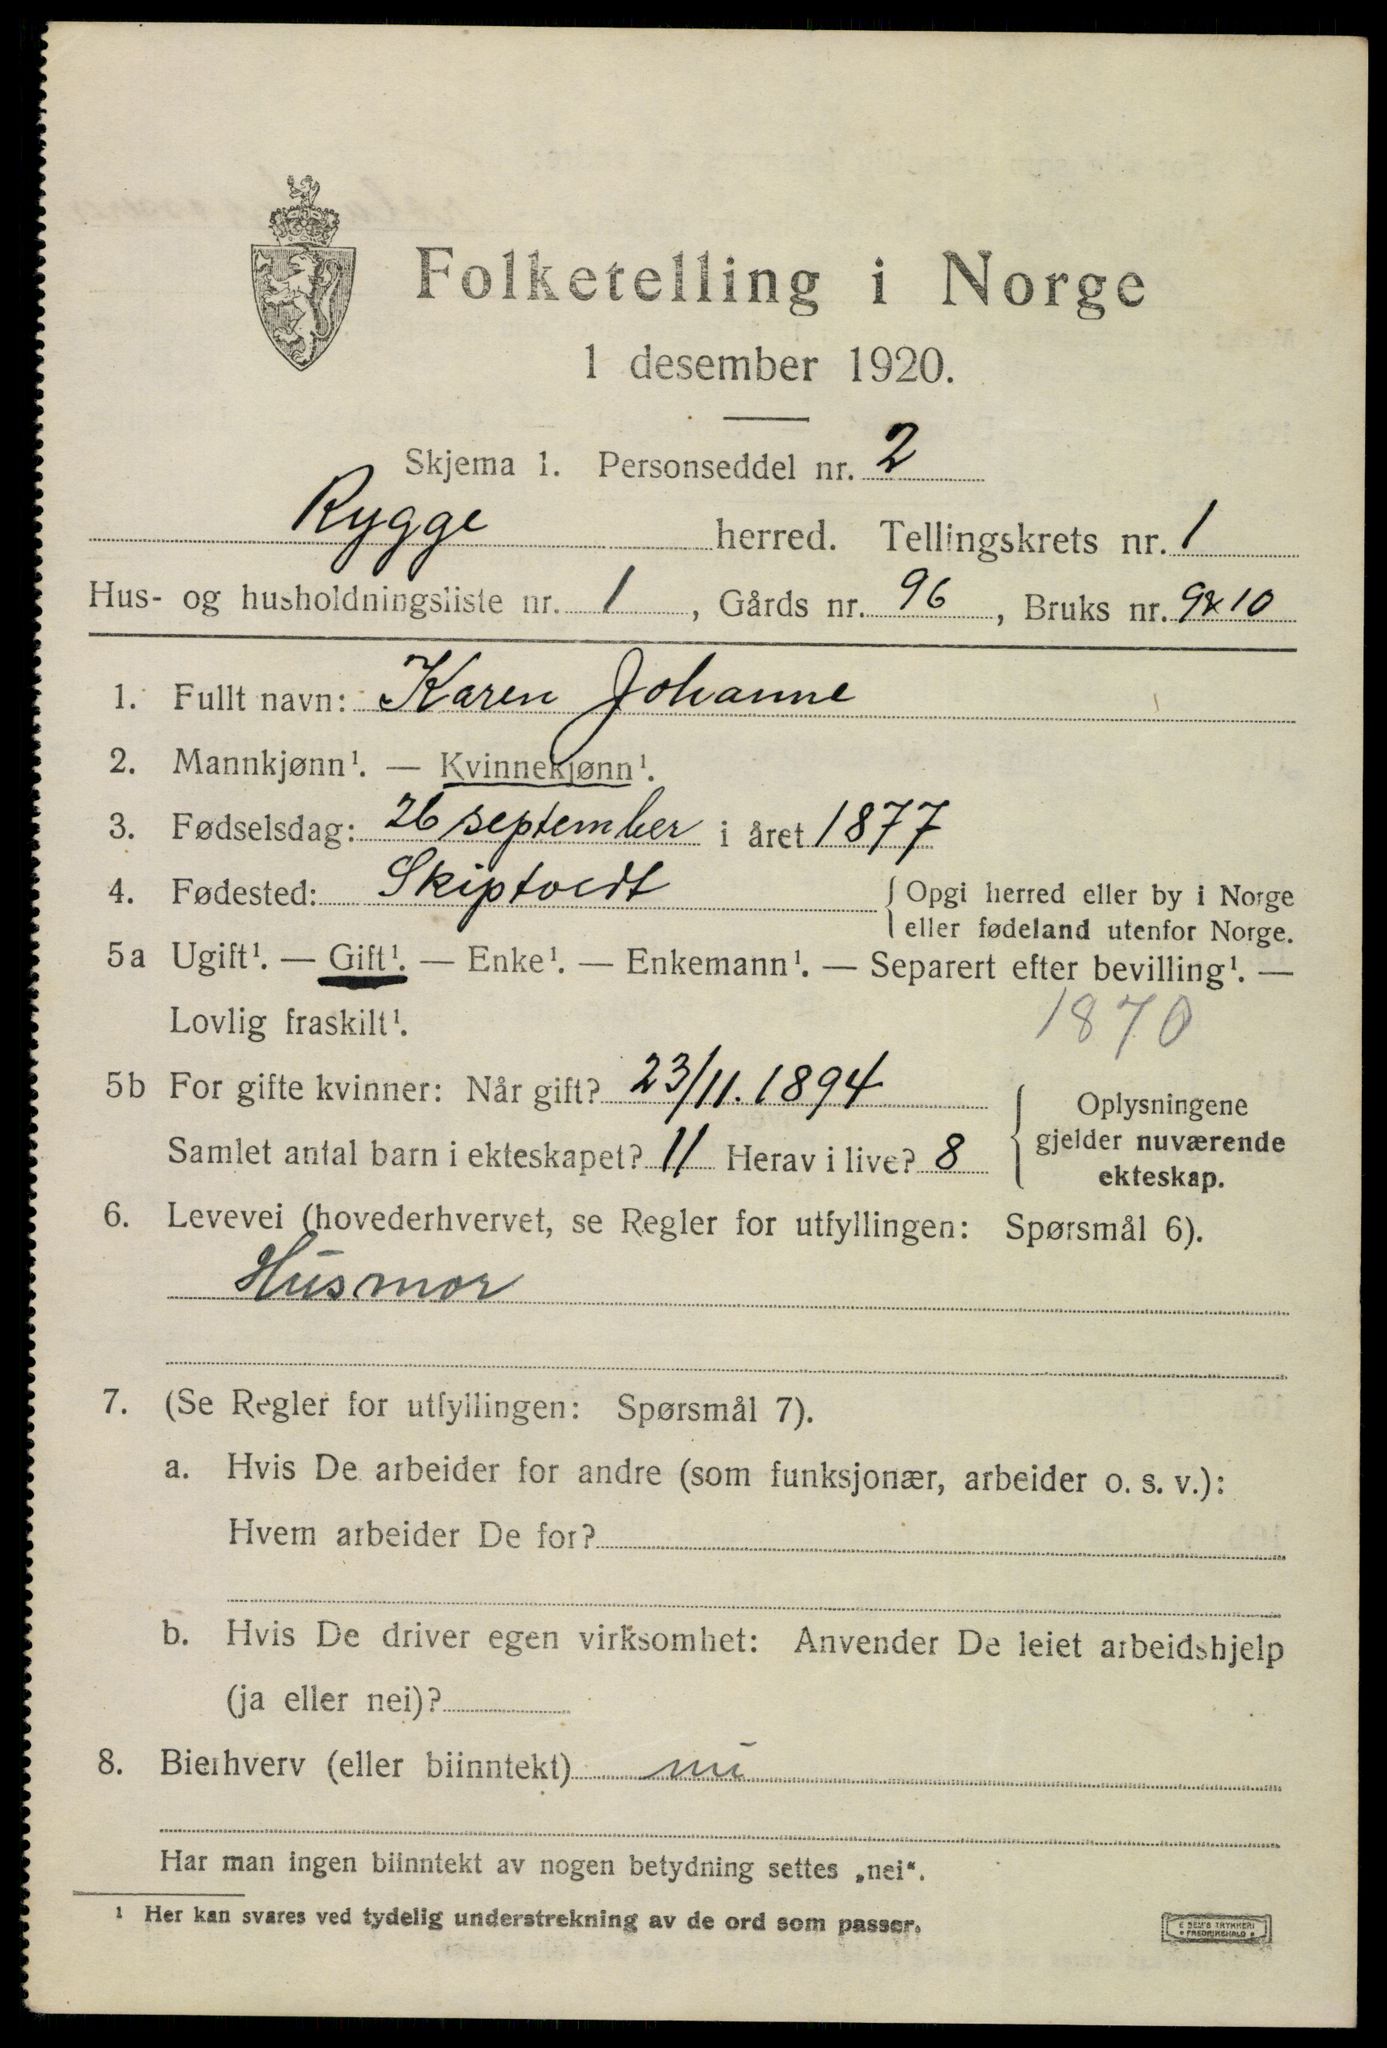 Folketelling i Norge
1 desember 1920.
Skjema 1. Personseddel nr. 2
Rygge herred. Tellingskrets nr. 1
Hus- og husholdningsliste nr. 1, Gårds nr. 96, Bruks nr. 9&10
1. Fullt navn: Karen Johanne
2. Mannkjønn¹. — Kvinnekjønn¹.
3. Fødselsdag: 26 september i året 1877
4. Fødested: Skiptvedt { Opgi herred eller by i Norge
eller fødeland utenfor Norge.
5a Ugift¹. — Gift¹. — Enke¹. — Enkemann¹. — Separert efter bevilling¹. —
Lovlig fraskilt¹. 1870
5b For gifte kvinner: Når gift? 23/11. 1894
Samlet antal barn i ekteskapet? 11 Herav i live? 8
Oplysningene
gjelder nuværende
ekteskap.
6. Levevei (hovederhvervet, se Regler for utfyllingen: Spørsmål 6).
Husmor
7. (Se Regler for utfyllingen: Spørsmål 7).
a. Hvis De arbeider for andre (som funksjonær, arbeider o. s. v.):
Hvem arbeider De for?
b. Hvis De driver egen virksomhet: Anvender De leiet arbeidshjelp
(ja eller nei)?
8. Bierhverv (eller biinntekt) nei
Har man ingen biinntekt av nogen betydning settes „nei“.
¹ Her kan svares ved tydelig understrekning av de ord som passer.
E SEM'S TRYKKERI
FREDRIKSHALD